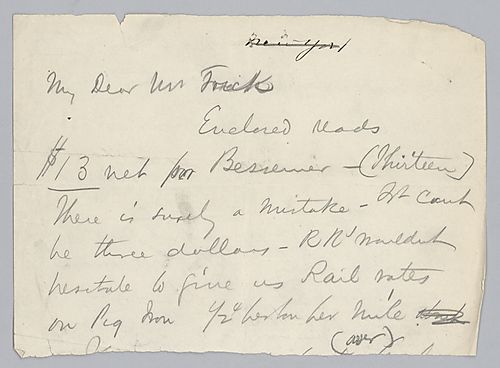 My Dear Mr Frick
Enclosed reads
$13 net for Bessemer - (Thirteen)
There is surely a mistake - It cant
be three dollars - RRs wouldnt
hesitate to give us Rail rates
on Pig Iron 1/2¢ per ton per mile
(over)